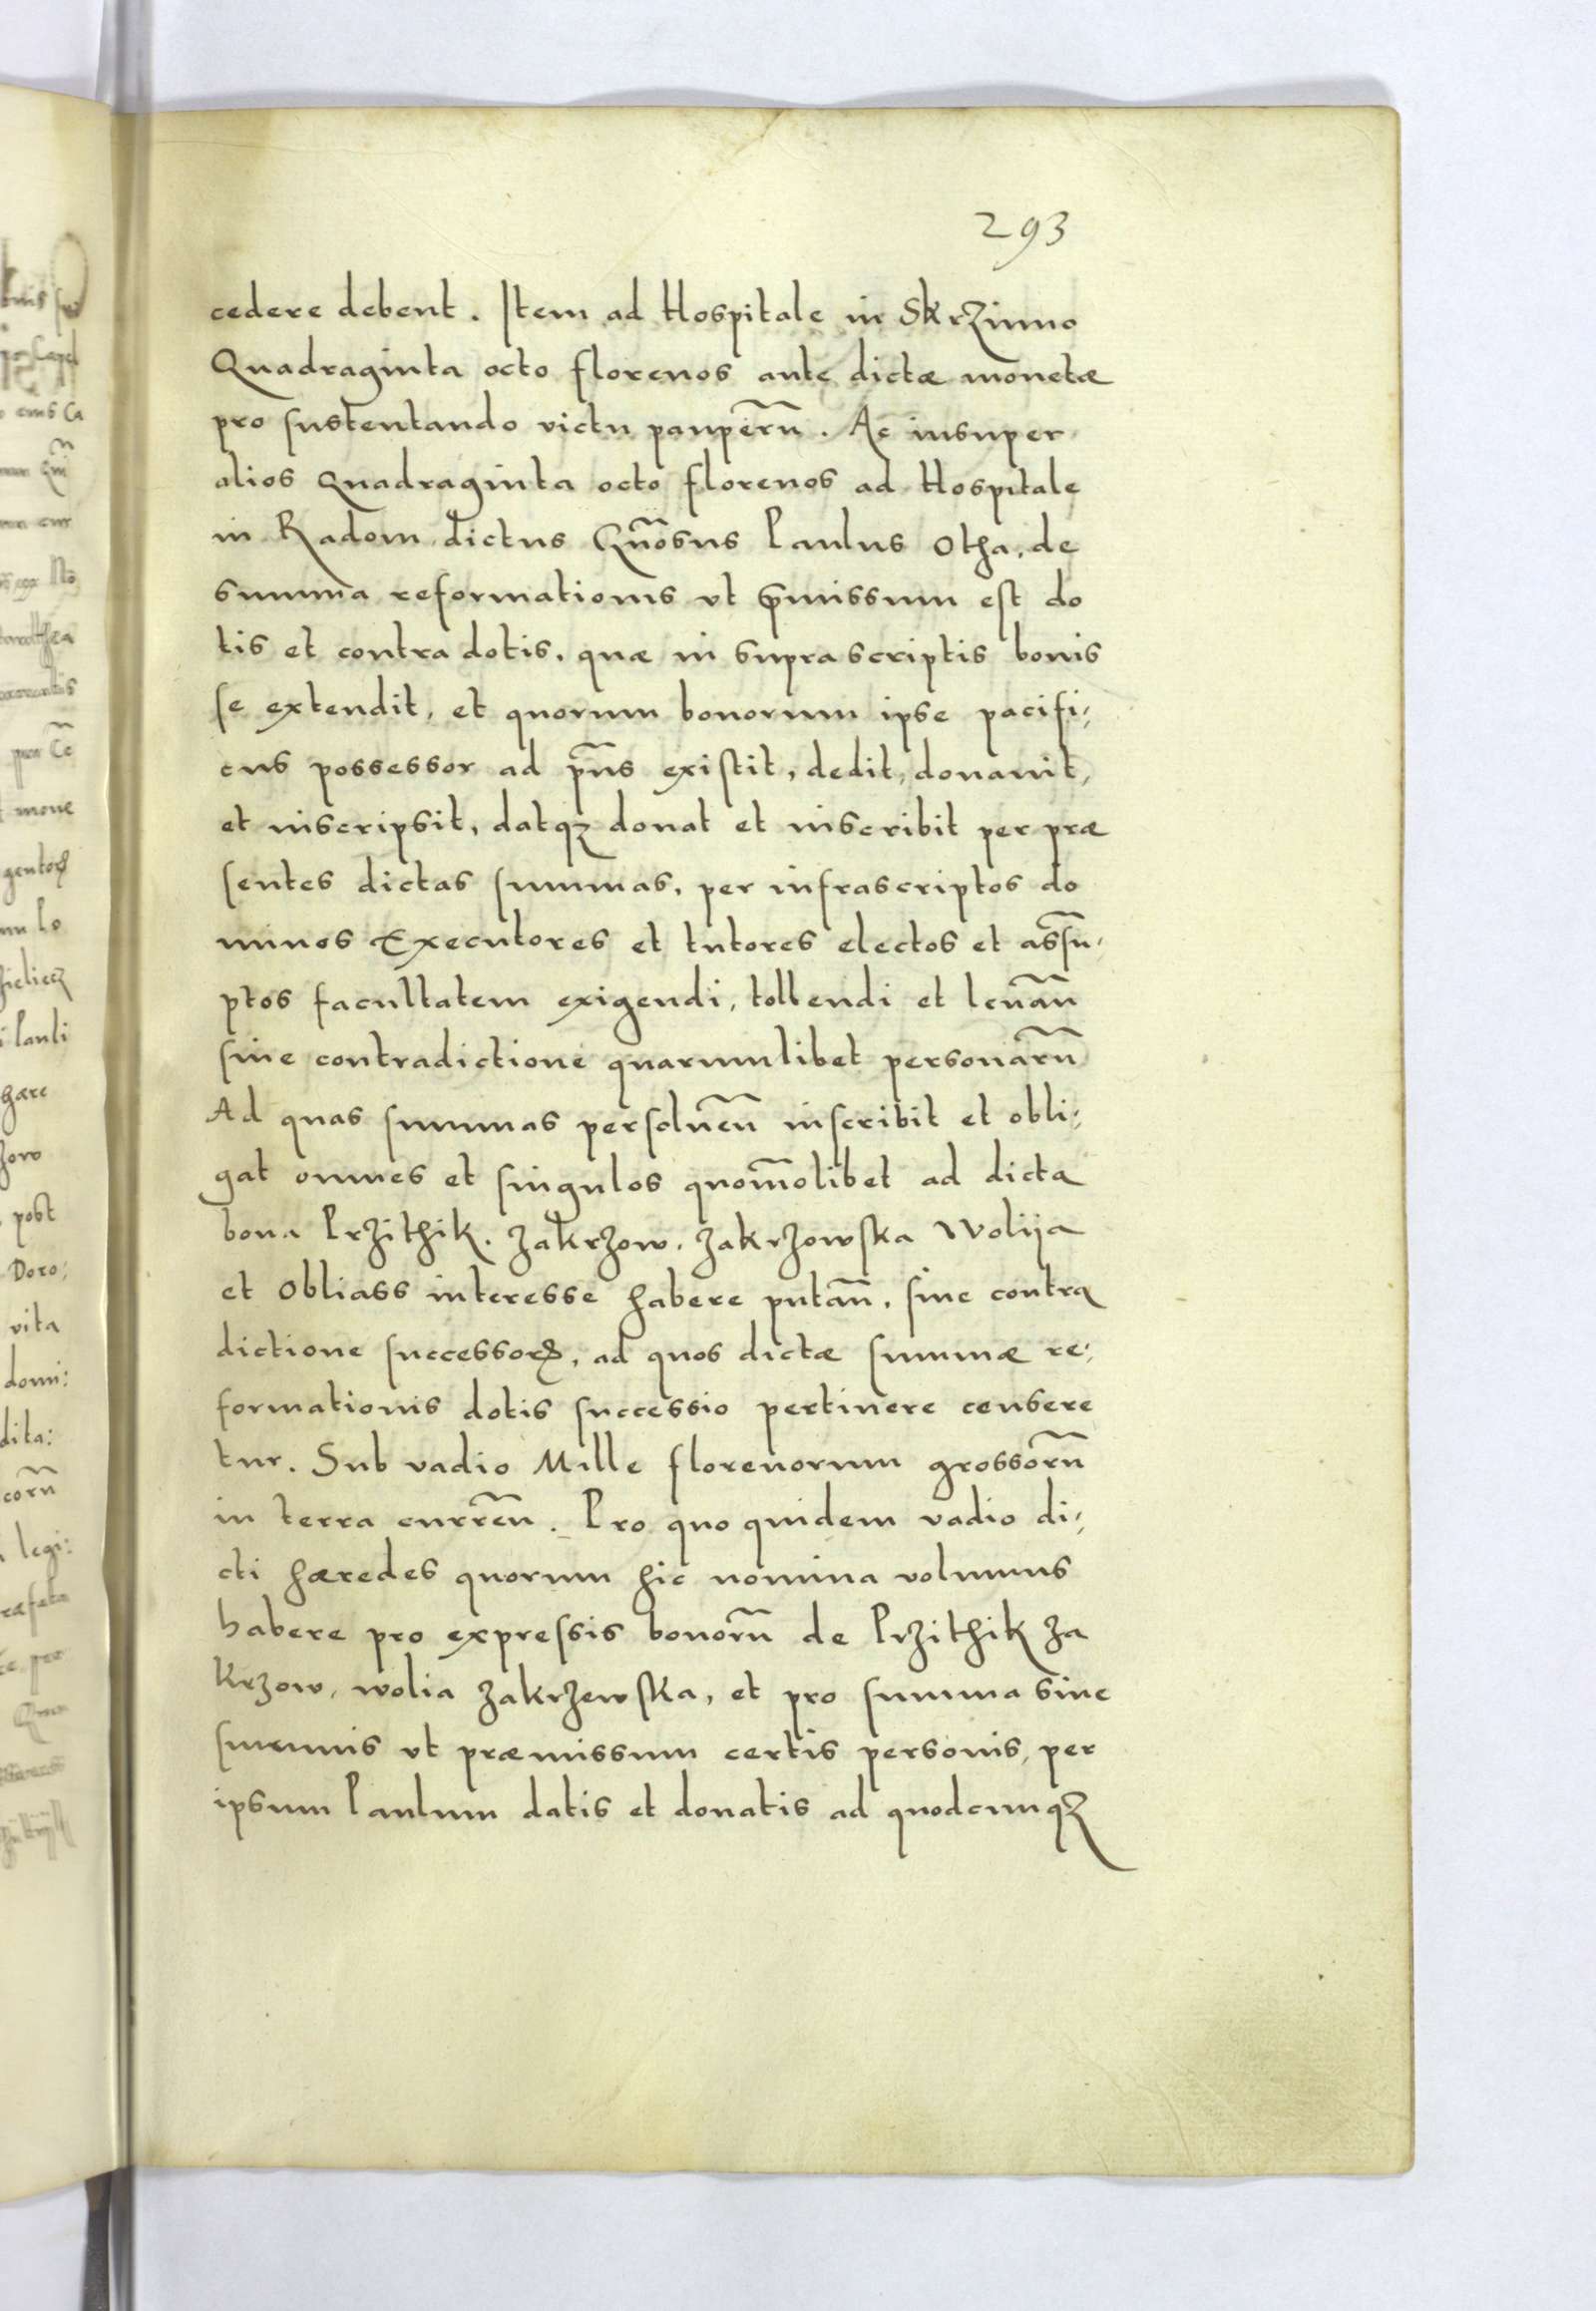 293
cedere debent. Item ad Hospitale in Skrzinno
Quadraginta octo florenos ante dictæ monetæ
pro sustentando victu pauperũ. Ac insuper
alios Quadraginta octo florenos ad Hospitale
in Radom dictus Gñosus Paulus Otha, de
summa reformationis vt p̃missum est do
tis et contra dotis, quæ in suprascriptis bonis
se extendit, et quorum bonorum ipse pacifi;
cus possessor ad p̃ns existit, dedit, donauit,
et inscripsit, datqꝫ donat et inscribit per præ
sentes dictas summas, per infrascriptos do
minos Executores et tutores electos et assũ,
ptos facultatem exigendi, tollendi et leuañ
sine contradictione quarumlibet personarũ
Ad quas summas persoluẽn inscribit et obli;
gat omnes et singulos quom̃olibet ad dicta
bona Przithik. Zakrzow. Zakrzowska Wolija
et Obliass interesse habere putañ. sine contra
dictione successoꝝ, ad quos dictæ summæ re;
formationis dotis successio pertinere censere
tur. Sub vadio Mille florenorum grossorũ
in terra currẽn. Pro quo quidem vadio di;
cti hæredes quorum hic nomina volumus
habere pro expressis bonorũ de Przithik Za
krzow, wolia Zakrzewska, et pro summa siue
summis vt præmissum certis personis, per
ipsum Paulum datis et donatis ad quodcumqꝫ